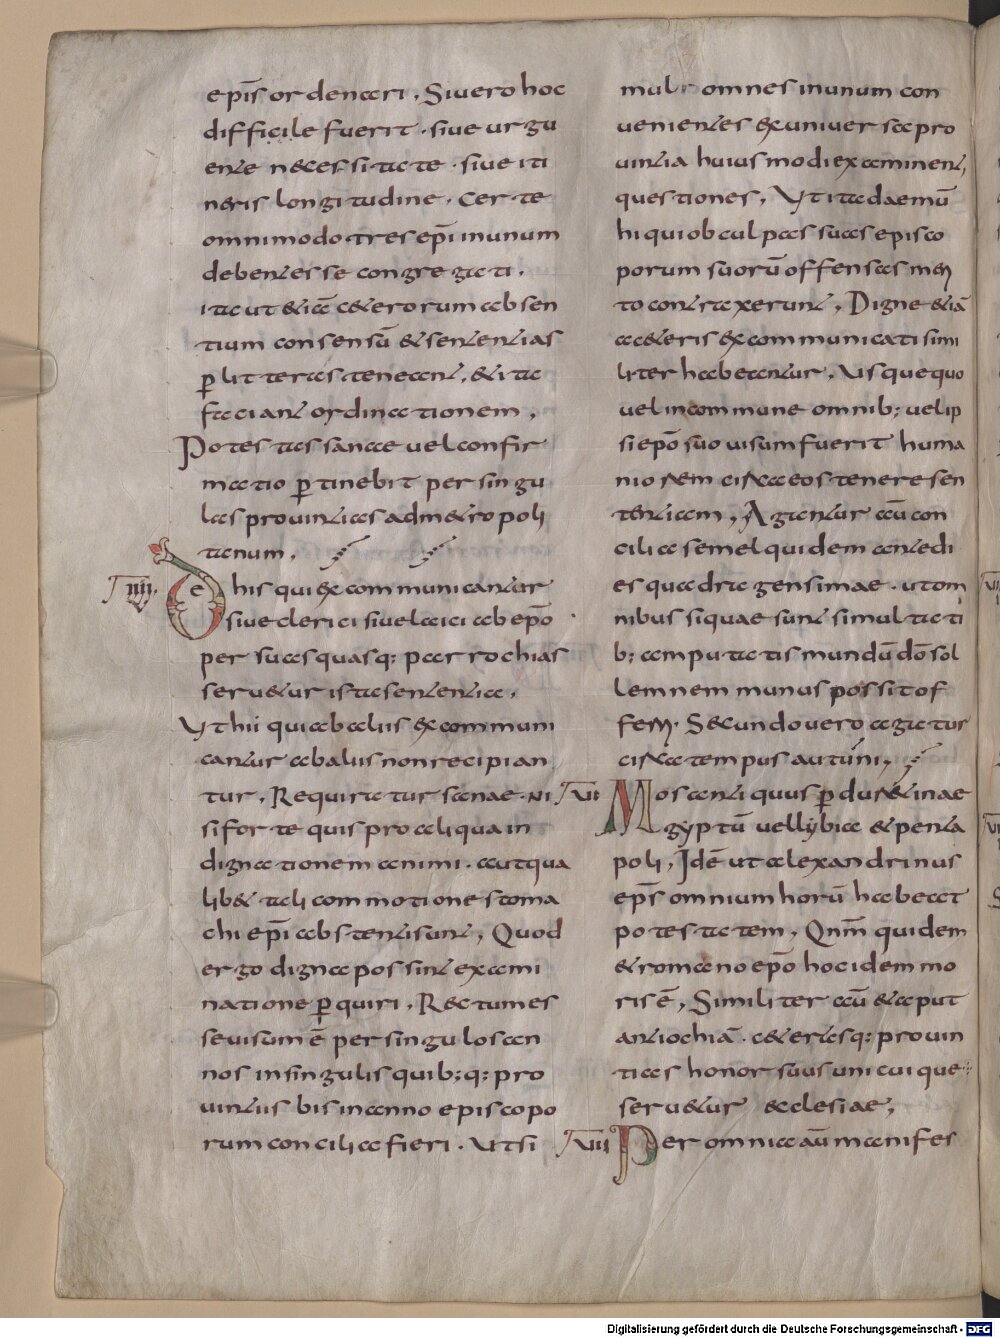 ep̄is ordenari. Si vero hoc
difficile fuerit. siue urgu
ente necessitate. siue iti
neris longitudine. Certe
omnimodo tres ep̄i in unum
debent esse congregati.
ita ut &iā c&erorum absen
tium consensū & sententias
p̱ litteras teneant, & ita
faciant ordinationem,
Potestas sanae uel confir
matio p̱tinebit per singu
las prouintias ad m&ropoli
tanum,
IIII. De his qui excommunicantur
siue clerici siue laici ab ep̄o
per suas quasq; parrochias
seru&ur ista sententia,
Vt hii qui ab aliis excommuni
cantur ab aliis non recipian
tur, Requiratur sane. ni
si forte quis pro aliqua in
dignatione animi. aut qua
lib& tali commotione stoma
chi ep̄i abstenti sunt, Quod
ergo digna possint exami
natione p̱quiri, Rectum es
se uisum ē per singulos an
nos in singulis quib;q; pro
uintiis bis in anno episcopo
rum concilia fieri. Ut si
mul omnes in unum con
uenientes ex uniuersa pro
uintia huiusmodi examinent
questiones, Vt ita daemū
hi qui ob culpas suas episco
porum suorū offensas meri
to contraxerunt, Digne &iā
a c&eris excommunicati simi
liter habeantur, Usque quo
uel in commune omnib; uel ip
si ep̄o suo uisum fuerit huma
niorem circa eos tenere sen
tentiam, Agantur aū con
cilia semel quidem ante di
es quadragensimae. ut om
nibus si quae sunt simultati
b; amputatis mundū dō sol
lemnem munus possit of
ferri. Secundo uero agatur
circa tempus autūni,
VI Mos antiquus p̱dur& in ae
gyptū uel lybia & penta
poli, Idē ut alexandrinus
ep̄s omnium horū habeat
potestatem, Qnm̄ quidem
& romano ep̄o hoc idem mo
ris ē, Similiter aū & aput
antiochiā. c&erasq: prouin
tias honor suus unicuique
seru&ur aecclesiae,
VII Per omnia aū manifes
Digitalisierung gefördert durch die Deutsche Forschungsgemeinschaft - DFG